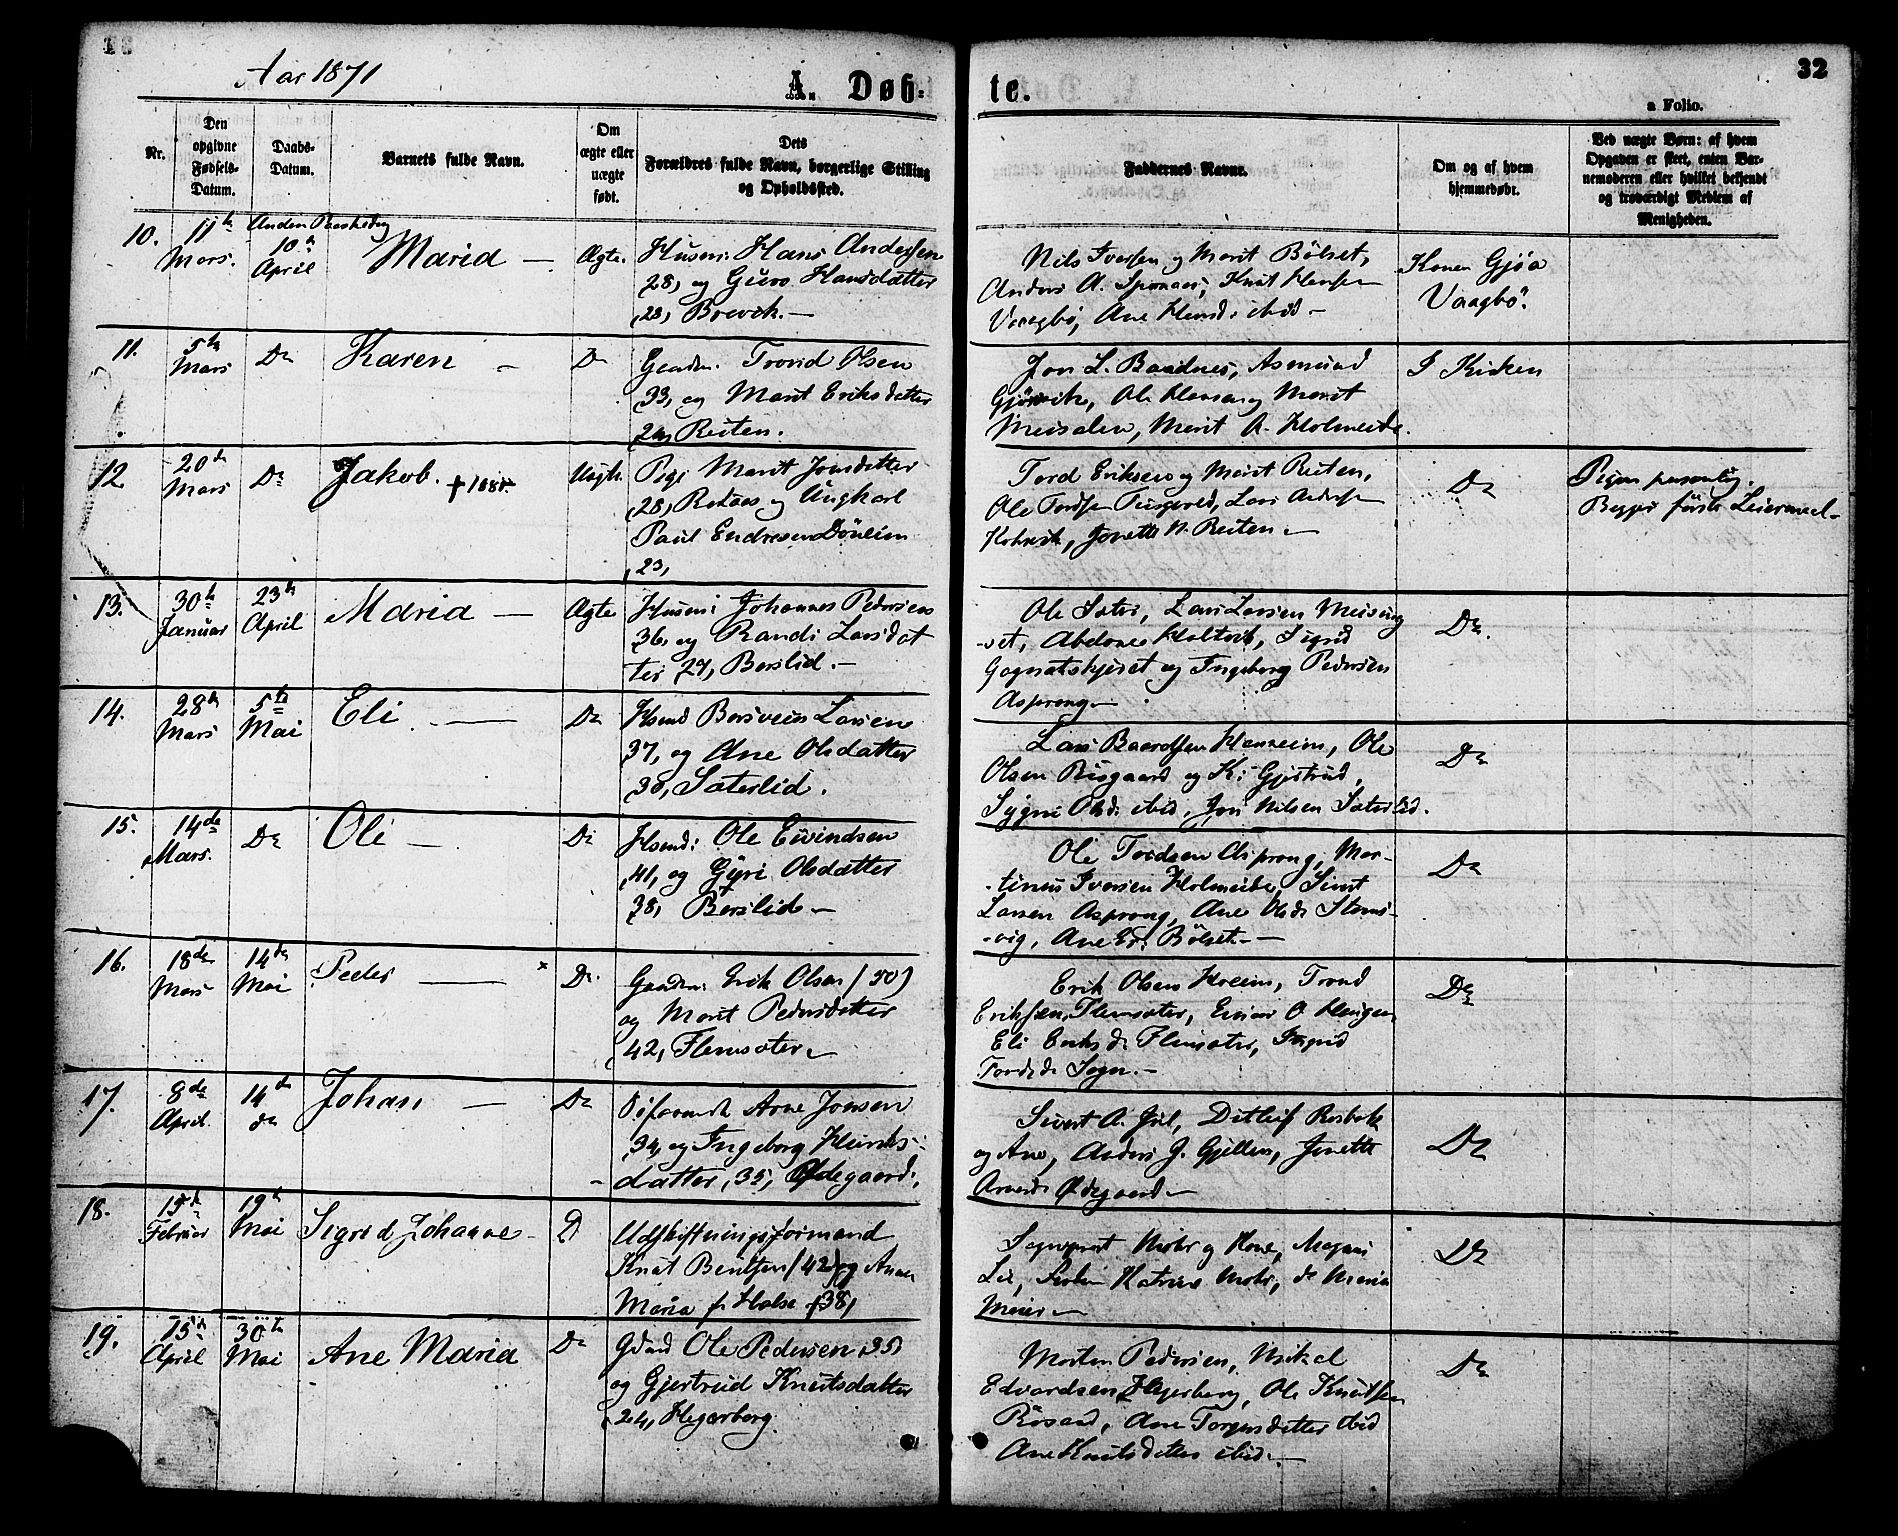 Aar 1871
A. Døb-
te.
32
a Folio.
Nr.
Den
opgivne
Fødsels-
Datum.
Daabs-
Datum.
Barnets fulde Navn.
Om
ægte eller
uægte
født.
Dets
Forældres fulde Navn, borgerlige Stilling
og Opholdssted.
Faddernes Navne.
Om og af hvem
hjemmedøbt.
Ved uægte Børn: af hvem
Opgaven er skeet, enten Bar-
nemoderen eller hvilket bekjendt
og troværdigt Medlem af
Menigheden.
10.
11te
Mars.
Anden Paaskedag
10de
April
Maria —
Ægte.
Husm: Hans Andersen
28, og Guro Hansdatter
28, Brevik. —
Nils Iversen og Marit Bölset,
Anders A. Knut
Vaagbø, Ane ibid —
Konen Gjøa
Vaagbø.
11.
5te
Mars
Do
Karen —
Do
Gaardm. Trond Olsen
33, og Marit Eriksdatter
Reiten.
Jon L. Baadnes, Asmund
Gjørvik, Ole og Marit
Meisalen, Marit A. Holmeide.
I Kirken
12.
20de
Mars
Do
Jakob.
Uægte.
Pige Marit Jonsdatter
28, og Ungkarl
Paul Endresen Döneim
23,
Tord Eriksen og Marit Reiten,
Ole Lars Andersen
Jonette N. Reiten —
Do
Pigen personlig.
Begges første Leiermaal —
13.
30te
Januar
23de
April
Maria —
Ægte
Husm: Johannes Pedersen
36, og Randi Larsdat
ter 27, Berslid. —
Ole Sæter, Lars Larsen Meising
-set, Abelone Sigrid
og Ingeborg Pedersen
Asprong —
Do.
14.
28de
Mars
5te
Mai
Eli —
Do
Larsen
37, og Ane Olsdatter
38, Sæterlid.
Lars Ole
Olsen Risgaard og
Olsd. ibid, Jon Nilsen Sæterlid.
Do
15.
14de
Mars.
Do
Oli —
Do
Husmd: Ole Eivindsen
41, og Gyri Olsdatter
38, Berslid —
Ole Tordsen Asprong, Mar-
-tinus Iversen Holmeide, Sivert
Larsen Asprong, Ane Olsd.
-vig, Ane Bölset. —
Do
16.
18de
Mars
14de
Mai
Peder —
×
Do.
Gaardm: Erik Olsen (50)
og Marit Pedersdatter
42, Flemsæter —
Erik Olsen Trond
Eriksen Flemsæter, Einar O.
Eli Eriksd. Flemsæter, Ingrid
—
Do
17.
8de
April.
14de
do
Johan —
Do
Arne Jonsen
34, og Ingeborg
datter, 35, Ødegaard.
Sivert A. Ditlef Rosbak
og Ane, Anders J. Gjellen, Jonette
Arnesd. Ødegaard —
Do
18.
15de
Februar
19de
Mai
Sigrid Johanne —
D
Udskiftningsformand
Knut Bentsen (42) og Anne
Maria f. Halse (38)
Sogneprest Mohr og Kone, Magnus
Lie, Katrine Mohr, do Maria
Meier —
Do
19.
15de
April
30te
Mai
Ane Maria
Do
Gdmd Ole Pedersen 35
og Gjertrud Knutsdatter
24, Hegerberg.
Morten Pedersen, Mikal
Edvardsen Hegerberg, Ole Knutsen
Røsand, Ane Torgersdatter ibid
Ane Knutsdatter ibid. —
Do